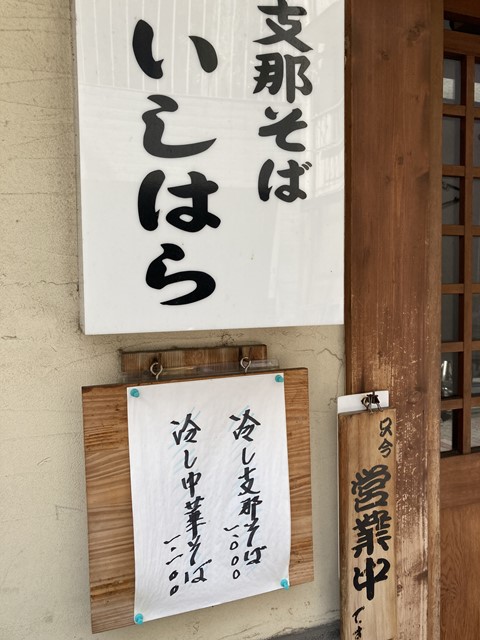 支那そば
いしはら
冷し支那そば 一、〇〇〇
冷し中華そば 一、一〇〇
只今
営業中
です